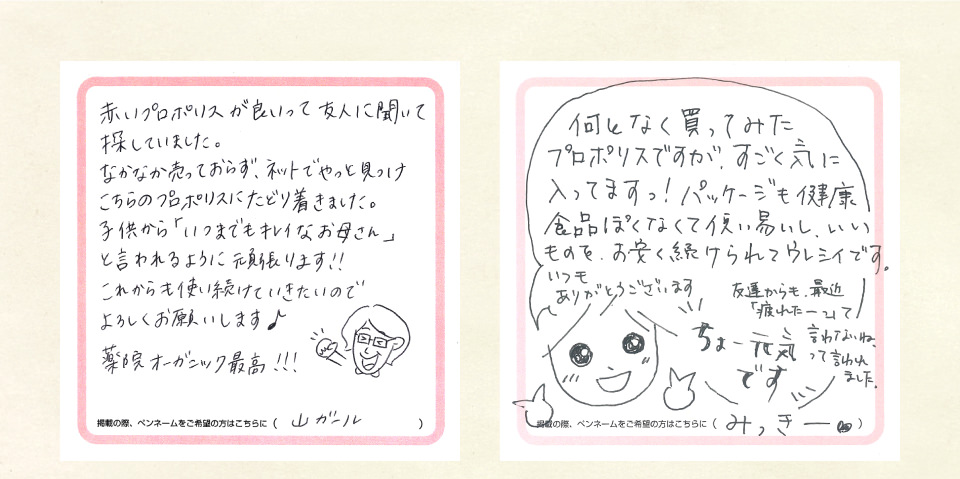 赤いプロポリスが良いって友人に聞いて
探していました。
なかなか売っておらず、ネットでやっと見つけ
こちらのプロポリスにたどり着きました。
子供から「いつまでもキレイなお母さん」
と言われるように頑張ります!!
これからも使い続けていきたいので
よろしくお願いします♪
薬院オーガニック最高!!!
掲載の際、ペンネームをご希望の方はこちらに ( 山ガール )
何となく買ってみた
プロポリスですが、すごく気に
入ってますっ!パッケージも健康
食品ぽくなくて使い易いし、いい
ものを、お安く続けられてウレシイです。
いつも
ありがとうございます
友達からも、最近
「疲れたー」って
言わないね、
って言われ
ました。
ちょー元気
です
掲載の際、ペンネームをご希望の方はこちらに ( みっきー )